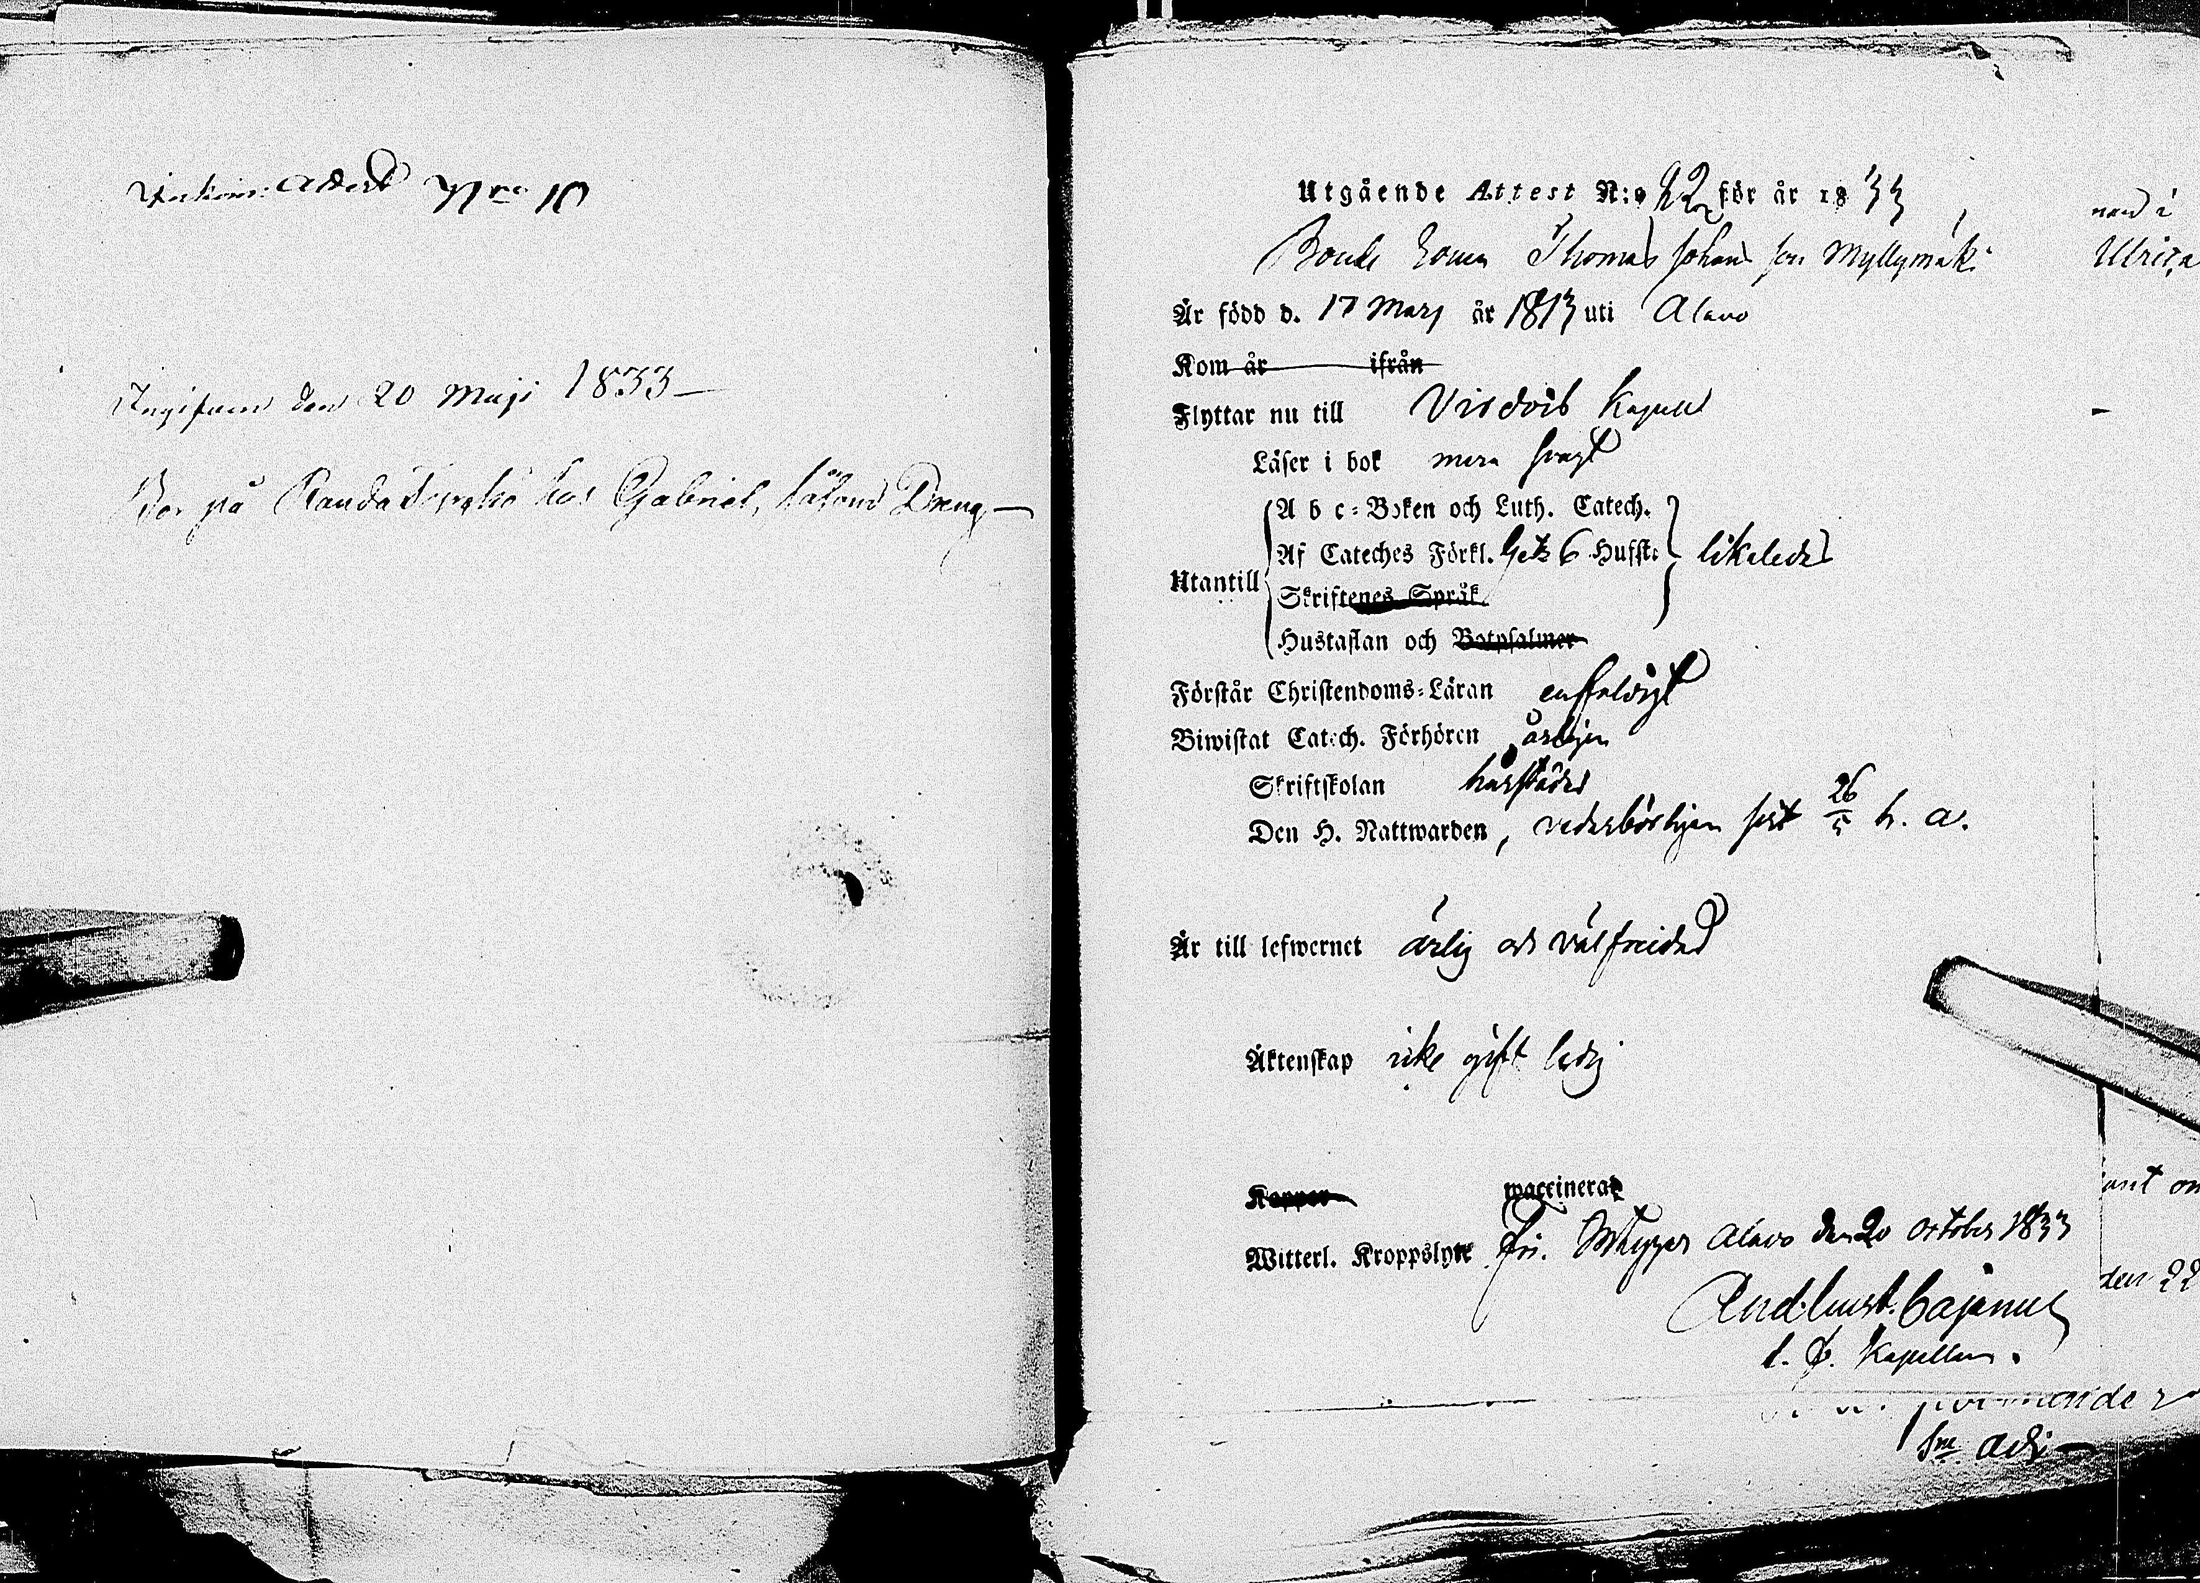 Inkom. Attest Nro 10
Ingifven den 20 Maji 1833
Bor på Randa hos Gabriel, såsom Dreng
Utgående Attest N:o 42 för år 1833
Bonde Sonen Thomas Johans son Myllymäki
Är född d. 17 Mars år 1813 uti Alavo
Kom år ifrån
Flyttar nu till Virdois Kapell
Läser i bok mera svagt
A b c-Boken och Luth. Catech.
Af Cateches Förkl. 6 Hufst. likaledes
Utantill
Skriftenes Språk
Hustaflan och Botpsalmer
Förstår Christendoms-Läran enfaldigt
Biwistat Catech. Förhören årligen
Skriftskolan härstädes
Den H. Nattwarden, vederbörligen sist 26/5 h. a.
Är till lefwernet ärlig och välfreidad
Äktenskap icke gift ledig
Koppor waccinerad
Witterl. Kroppslyte fri. Alavo den 20 October 1833
And. Gust. Cajanus
Kapellan.
nard i
Ulrica
den 22